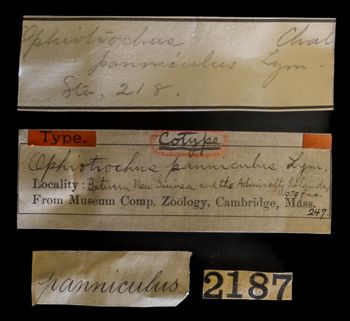 Ophiotrochus Chal
panniculus Lym.
Stn. 218.
Type. Cotype
Ophiotrochus panniculus Lym.
Locality: Between New Guinea and the Admiralty Islands,
1070 fms.
From Museum Comp. Zoölogy, Cambridge, Mass.
247.
panniculus
2187